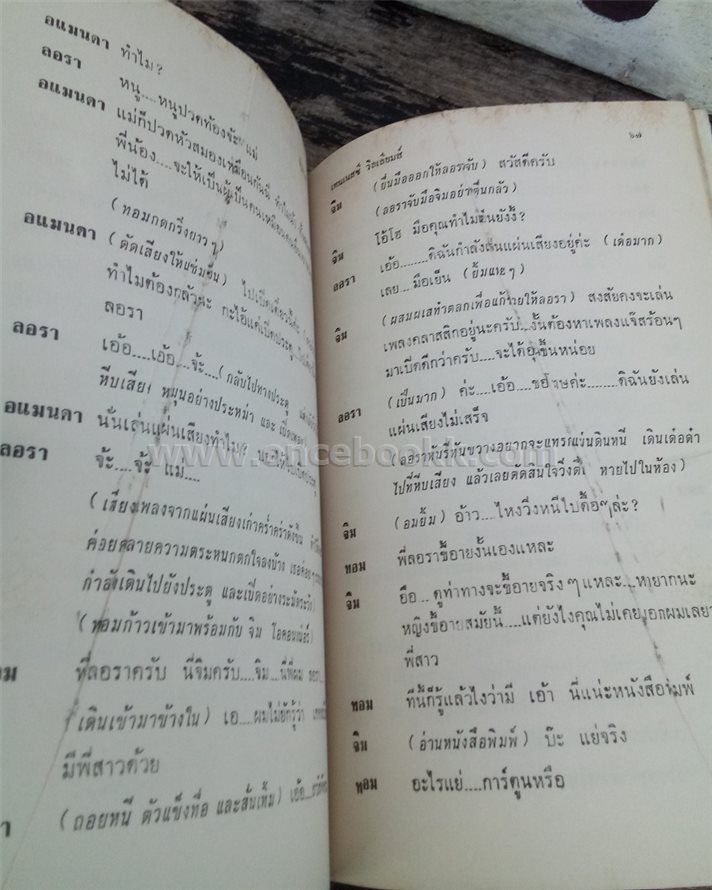 อแมนดา ทำไม?
ลอรา หนู....หนูปวดท้องจ้ะ แม่
อแมนดา แม่ก็ปวดหัวสมองเหมือนกันนี่
พี่น้อง....จะให้เป็นผู้เป็นคนเหมือน
ไม่ได้
(ทอมกดกริ่งยาว ๆ)
อแมนดา (ดัดเสียงให้แช่มชื่น) ไปเปิด
ทำไมต้องกลัวนะ กะไอ้แค่เปิดประตู
ลอรา
ลอรา เอ้อ....เอ้อ....จ้ะ....(กลับไปทางประตู
หีบเสียง หมุนอย่างประหม่า และ
อแมนดา นั่นเล่นแผ่นเสียงทำไม?
ลอรา จ้ะ....จ้ะ แม่....
(เสียงเพลงจากแผ่นเสียงเก่าคร่ำคร่าดังขึ้น
ค่อยคลายความตระหนกตกใจลงบ้าง เธอค่อย ๆ
กำลังเดินไปยังประตู และเปิดอย่างระมัดระวัง)
(ทอมก้าวเข้ามาพร้อมกับ จิม โอคอนเน่อร์)
อม พี่ลอราครับ นี่จิมครับ....จิม....นี่พี่ผม ลอรา
(เดินเข้ามาข้างใน) เอ....ผมไม่ยักรู้ว่า
มีพี่สาวด้วย
า (ถอยหนี ตัวแข็งทื่อ และสั่นเทิ้ม) เอ้อ....
๖๗
เทนเนสซี วิลเลียมส์
จิม (ยื่นมือออกให้ลอราจับ) สวัสดีครับ
(ลอราจับมือจิมอย่างตื่นกลัว)
จิม โอ้โฮ มือคุณทำไมเย็นยังงี้?
ลอรา เอ้อ........ดิฉันกำลังเล่นแผ่นเสียงอยู่ค่ะ (เด๋อมาก)
เลย....มือเย็น (ยิ้มแหย ๆ)
จิม (ผสมผเสทำตลกเพื่อแก้อายให้ลอรา) สงสัยคงจะเล่น
เพลงคลาสสิกอยู่นะครับ....งั้นต้องหาเพลงแจ๊สร้อนๆ
มาเปิดดีกว่าครับ....จะได้อุ่นขึ้นหน่อย
ลอรา (เปิ่นมาก) ค่ะ....เอ้อ....ขอโทษค่ะ........ดิฉันยังเล่น
แผ่นเสียงไม่เสร็จ
(ลอราหันรีหันขวางอยากจะแทรกแผ่นดินหนี เดินเด๋อด๋า
ไปที่หีบเสียง แล้วเลยตัดสินใจวิ่งตื๋อ หายไปในห้อง)
จิม (อมยิ้ม) อ้าว....ไหงวิ่งหนีไปดื้อๆล่ะ?
ทอม พี่ลอราขี้อายงั้นเองแหละ
จิม อือ....ดูท่าทางจะขี้อายจริง ๆ แหละ....หายากนะ
หญิงขี้อายสมัยนี้....แต่ยังไงคุณไม่เคยบอกผมเลยว่า
พี่สาว
ทอม ทีนี้ก็รู้แล้วไงว่ามี เอ้า นี่แน่ะหนังสือพิมพ์
จิม (อ่านหนังสือพิมพ์) บ๊ะ แย่จริง
ทอม อะไรแย่....การ์ตูนหรือ
www.oncebookk.com